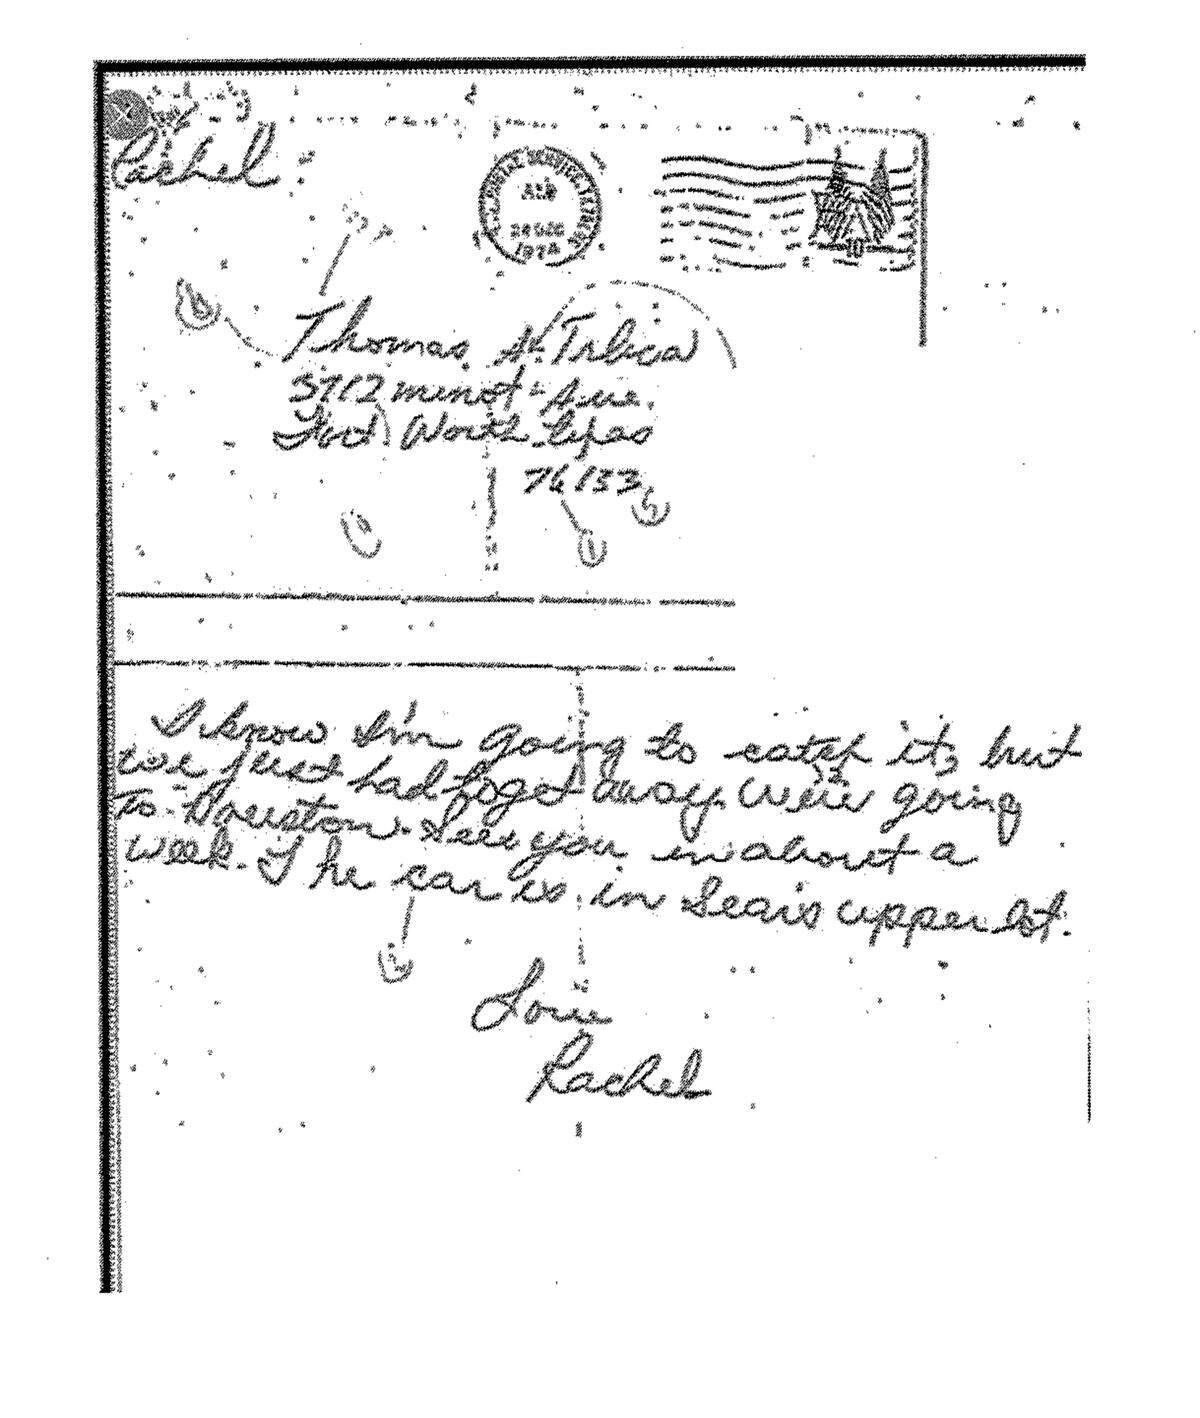 Rachel
U.S. POSTAL SERVICE, TX
AM
24 DEC
1974
10
Thomas A. Trlica
3712 minot Ave.
Fort Worth Texas
76133
1
I know I'm going to catch it, but
we just had to get away. We're going
to Houston. See you in about a
week. The car is in Sear's upper lot.
Love
Rachel